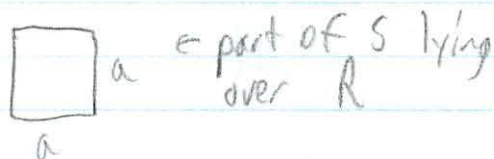 a ← part of S lying
over R
a